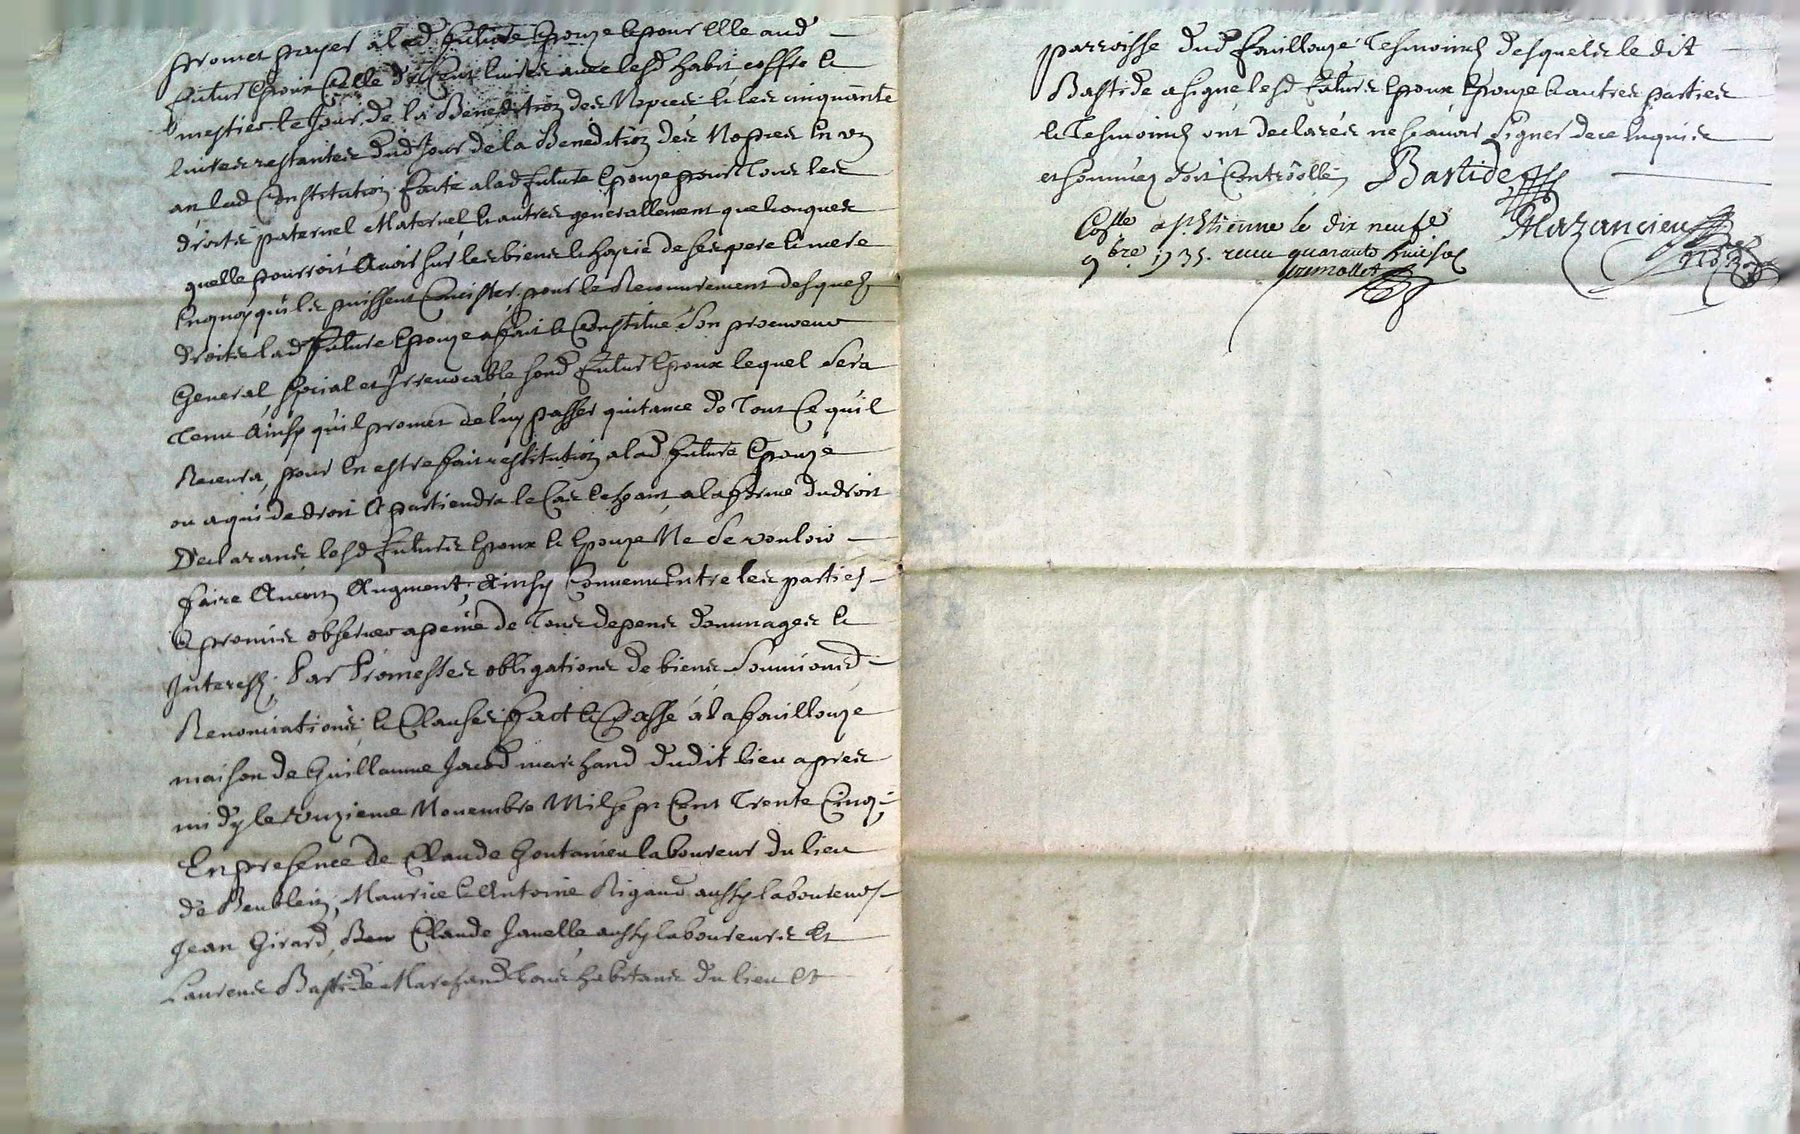 promet payer a lad future Epouze & pour Elle aud
futur Epoux Celle de Cent livres avec lesd habit coffre &
mestier le Jour de la Benedition des Nopces & les cinquante
livres restantes dud Jour de la Benedition des Nopces En un
an lad Constitution faite a lad future Epouze pour Tous les
droits paternel Maternel & autres generallement quelconques
quelle pourroit Avoir sur les biens & hoirie de ses pere & mere
Enquoy qu'ils puissent Concister, pour le Recouvrement desquels
droits lad future Epouze a fait & Constitué son procureur
General, special et Irrevocable sond futur Epoux lequel sera
Tenu Ainsy qu'il promet de luy passer quitance de Tout Ce qu'il
Recevra, pour En estre fait restitution a lad future Epouze
ou a qui de droit Apartiendra le Cas Escheant, a la forme du droit
Declarants lesd futurs Epoux & Epouze Ne se vouloir
faire Aucun Augment, Ainsy Convenu Entre les parties
& promis observer a peine de Tous depens dommages &
Interests, Par Promesses obligations de biens soumions
Renonciations, & Clauses fait & Passé a la fouillouze
maison de Guillaume Jacod marchand dudit lieu apres
midy le onzieme Novembre Mil sept Cent Trente Cinq,
En presence de Claude Goutanieu laboureur du lieu
de Beublein, Maurice & Antoine Rigaud aussy laboureurs
Jean Girard, Claude Janelle aussy laboureurs Et
Laurens Bastide Marchand Tous habitans du lieu Et
parroisse dud fouillouze Tesmoins desquels le dit
Bastide a signé lesd futurs Epoux Epouze & autres parties
& Tesmoins ont declarés ne sçavoir signer de ce Enquis
et sommés soit Controollé Bastide
Collé a St Etienne le dix neufe Mazancieu
9bre 1735. receu quarante huit sols Nore
Grimollet